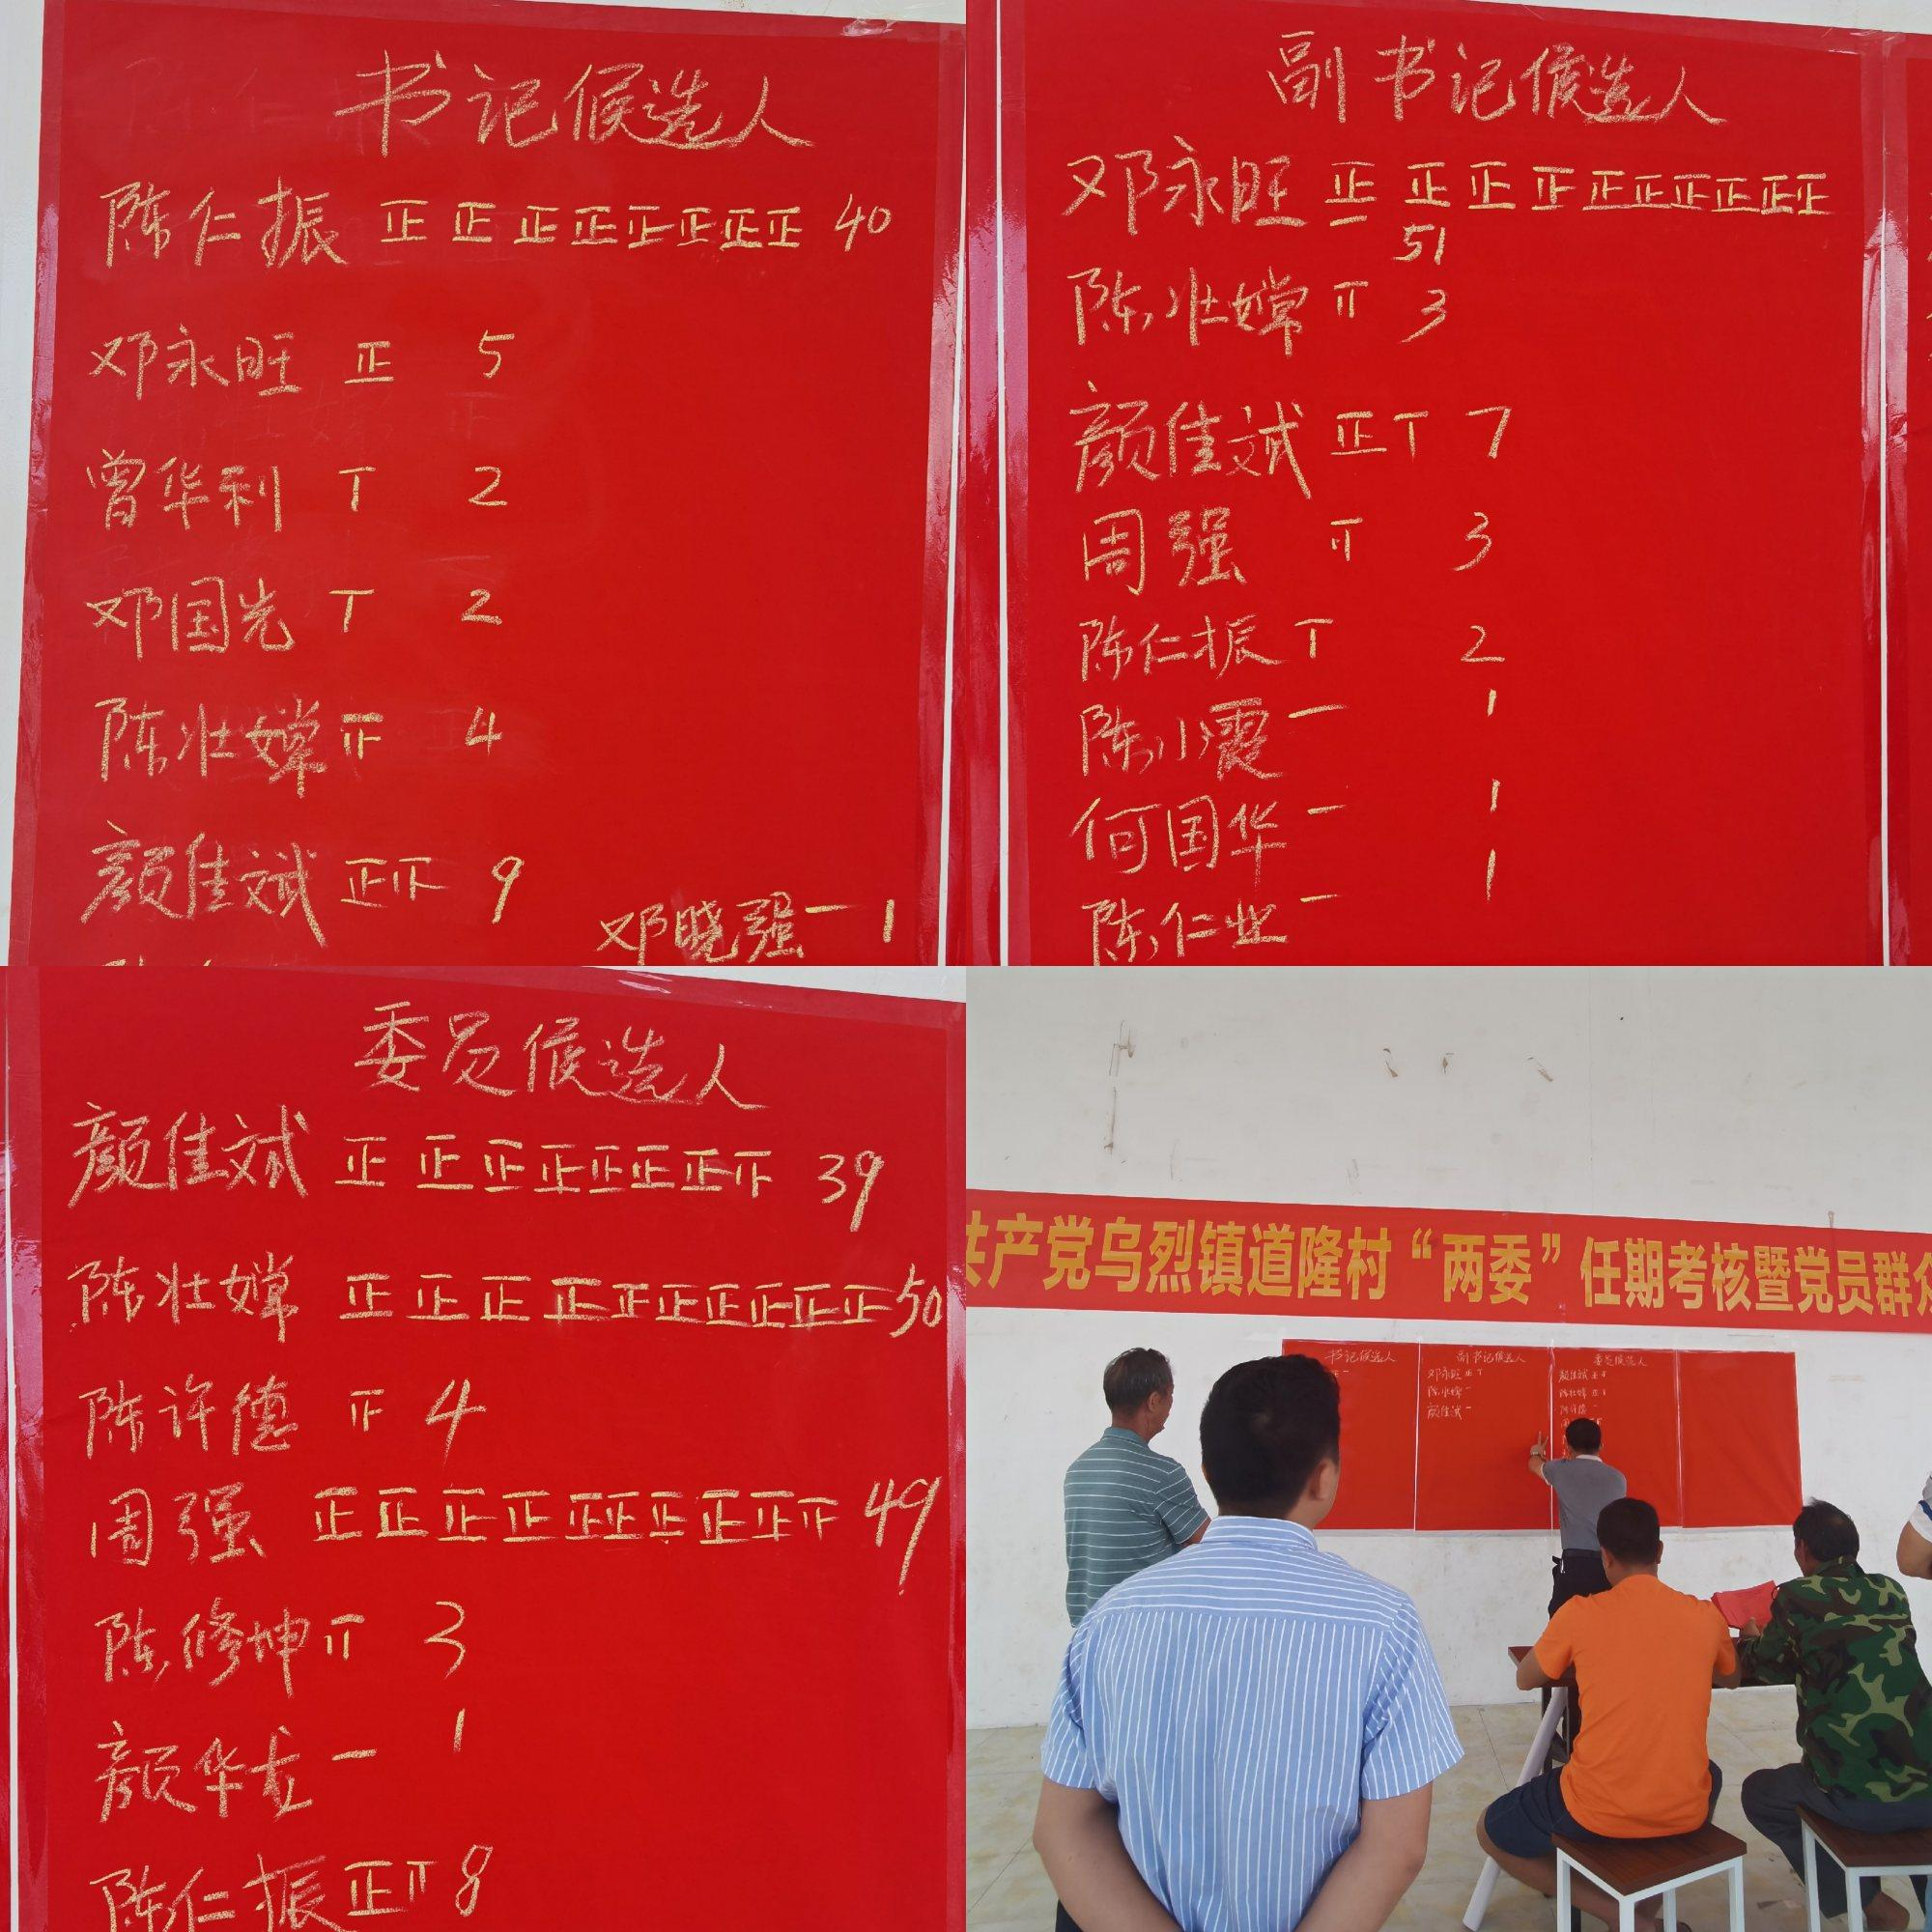 书记候选人
陈仁振 正正正正正正正正 40
邓永旺 正 5
曾华利 丅 2
邓国光 丅 2
陈壮嫦 𠄟 4
颜佳斌 正𠄟 9
邓晓强 一 1
副书记候选人
邓永旺 正正正正正正正正正正
一 51
陈壮嫦 丌 3
颜佳斌 正丅 7
周强 丌 3
陈仁振 丅 2
陈小霞 一 1
何国华 一 1
陈仁业 一 1
委员候选人
颜佳斌 正正正正正正正𠄟 39
陈壮嫦 正正正正正正正正正正 50
陈许德 𠄟 4
周强 正正正正正正正正正𠄟 49
陈修坤 丌 3
颜华龙 一 1
陈仁振 正丌 8
共产党乌烈镇道隆村“两委”任期考核暨党员群众
书记候选人
副书记候选人
邓永旺 正丅
陈壮嫦 一
颜佳斌 一
委员候选人
颜佳斌 正
陈壮嫦 正
陈许德 一